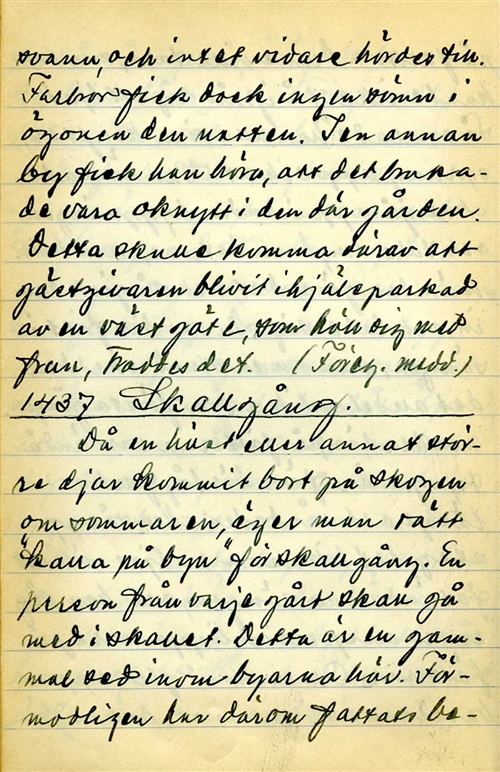 svann, och intet vidare hördes till.
Farbror fick dock ingen sömn i
ögonen den natten. I en annan
by fick han höra, att det bruka-
de vara oknytt i den där gården.
Detta skulle komma därav att
gästgivaren blivit ihjälsparkad
av en väst göte, som höll sig med
fran, troddes det. (Föreg. medd.)
1437 Skallgång.
Då en häst eller annat stör-
re djur kommit bort på skogen
om sommaren, äger man rätt
"kalla på byn" för skallgång. En
person från varje gård skall gå
med i skallet. Detta är en gam-
mal sed inom byarna här. För-
modligen har därom fattats be-